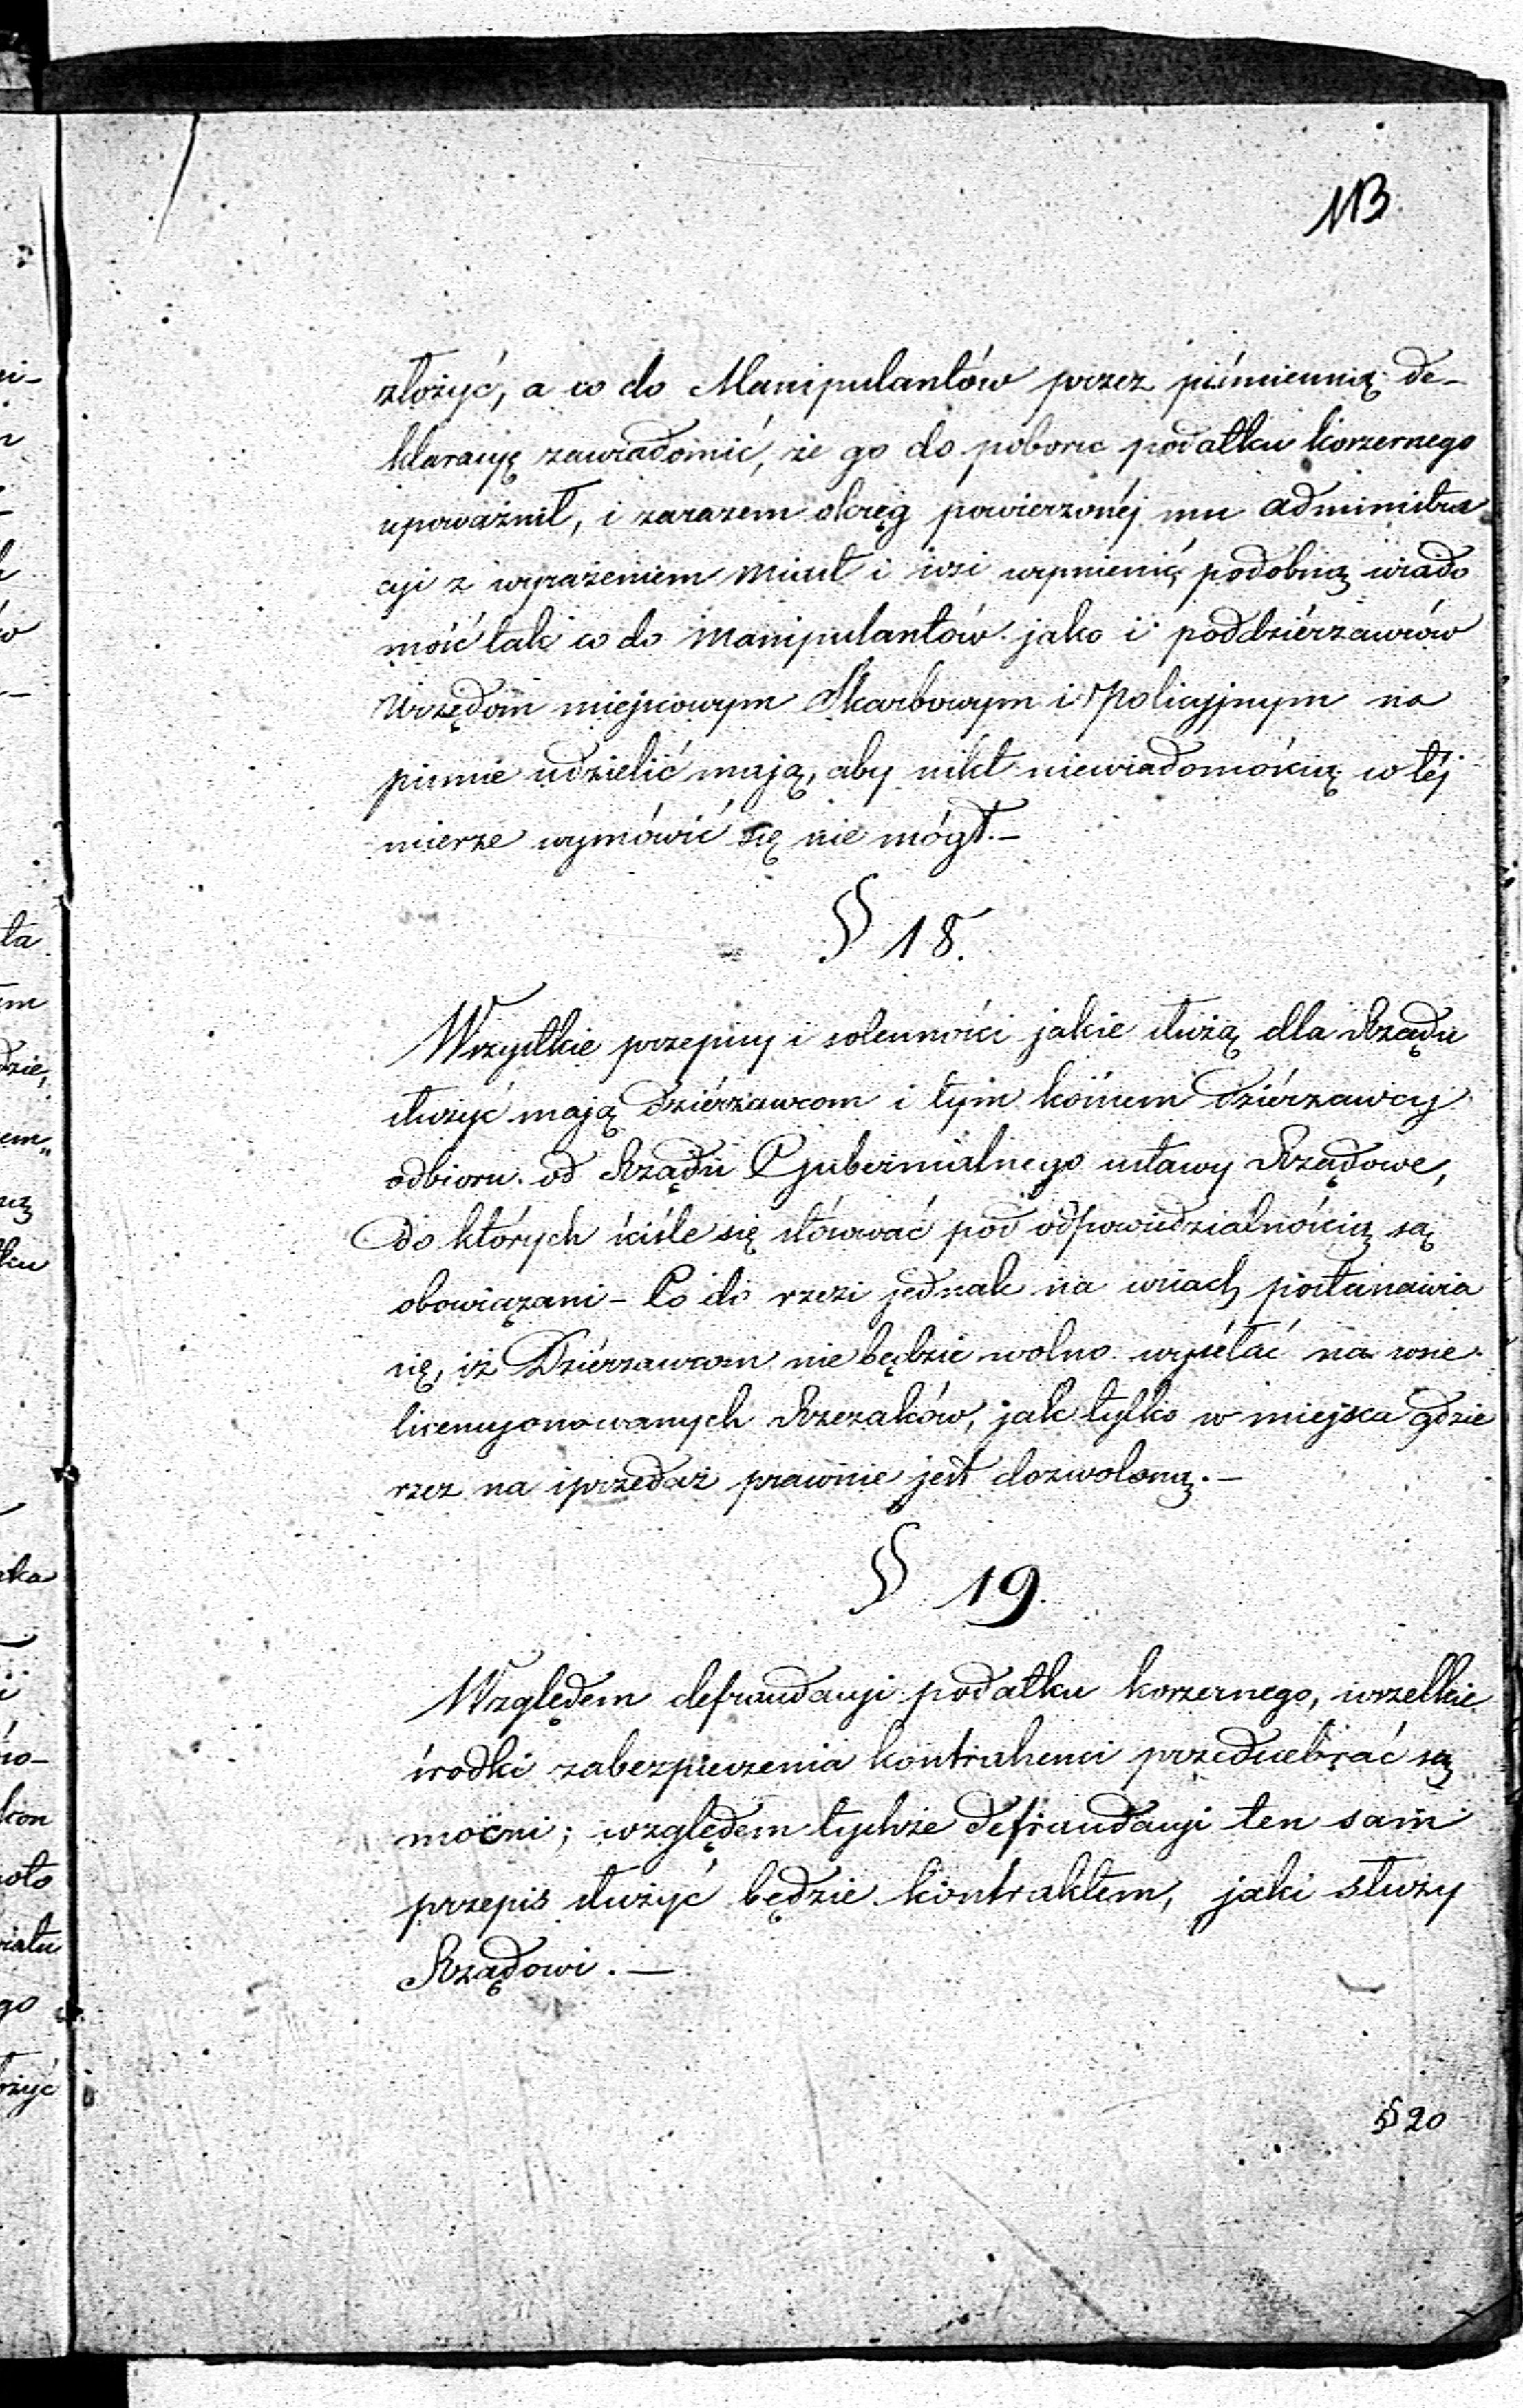 113
złożyć, a co do Manipulantów przez piśmienną de-
klaracyę zawiadomić, że go do poboru podatku koszernego
upoważnił, i zarazem okręg powierzonéj mu administra
cyi z wyrażeniem miast i wsi wymienić, podobną wiado
mość tak co do Manipulantów jako i poddziérzawców
Urzędom miejscowym Skarbowym i Policyjnym na
piśmie udzielić mają, aby nikt niewiadomością w téj
mierze wymówić się nie mógł.—
§ 18.
Wszystkie przepisy i solenności jakie służą dla Rządu
służyć mają Dziérzawcom i tym końcem Dziérzawcy
odbiorą od Rządu Gubernialnego ustawy Rządowe,
do których ściśle się stósować pod odpowiedzialnością są
obowiązani – Co do rzezi jednak na wsiach postanawia
się, iż Dziérzawcom nie będzie wolno wysełać na wsie
licencyonowanych Rzezaków, jak tylko w miejsca gdzie
rzez na sprzedaż prawnie jest dozwoloną.—
§ 19.
Względem defraudacyi podatku koszernego, wszelkie
środki zabezpieczenia kontrahenci przedsiebrać są
mocni; względem tychże defraudacyi ten sam
przepis służyć będzie kontraktem, jaki służy
Rządowi.—
§ 20